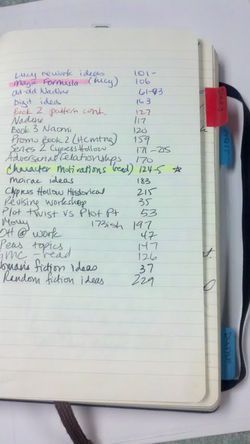 Lucy rework ideas 101-
Magic Formula (Lucy) 106
Nadine 61-93
ideas 163
Book 2 pattern cont. 127
Nadine 117
Book 3 Naomi 120
Promo Book 2 (HCmtns) 159
Series 2 Cypress Hollow 171-215
Adversarial Relationships 170
Character Motivations (read) 124-5
ideas 183
Cypress Hollow Historical 215
Revising workshop 35
Plot twist vs Plot Pt 53
197
OH @ work 47
Peas topics 147
GMC - read 126
Womans fiction Ideas 37
Random fiction ideas 229